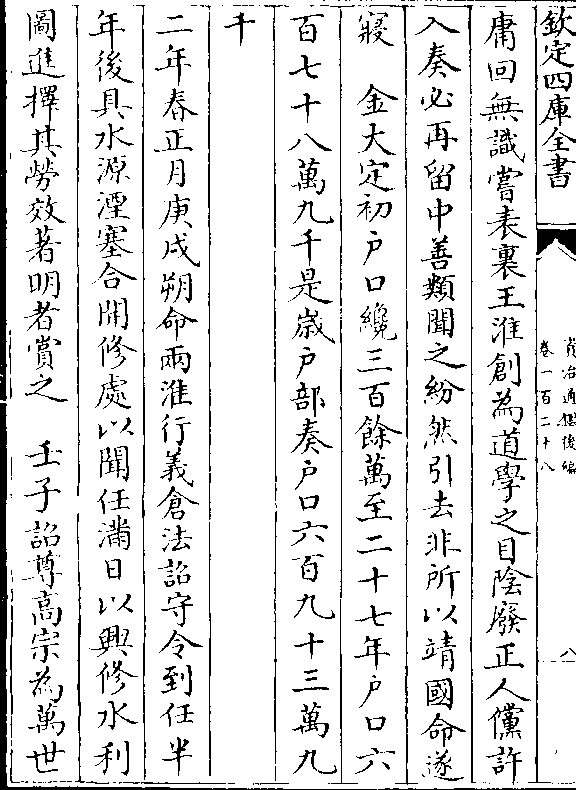 欽定四庫全書
資治通鑑後編
卷一百二十八
八
庸回無識嘗表裏王淮創為道學之目陰廢正人儻許
入奏必再留中善類聞之紛然引去非所以靖國命遂
寢　金大定初户口纔三百餘萬至二十七年户口六
百七十八萬九千是歲户部奏户口六百九十三萬九
千
二年春正月庚戌朔命兩淮行義倉法詔守令到任半
年後具水源湮塞合開修處以聞任滿日以興修水利
圖進擇其勞效著明者賞之　壬子詔尊高宗為萬世